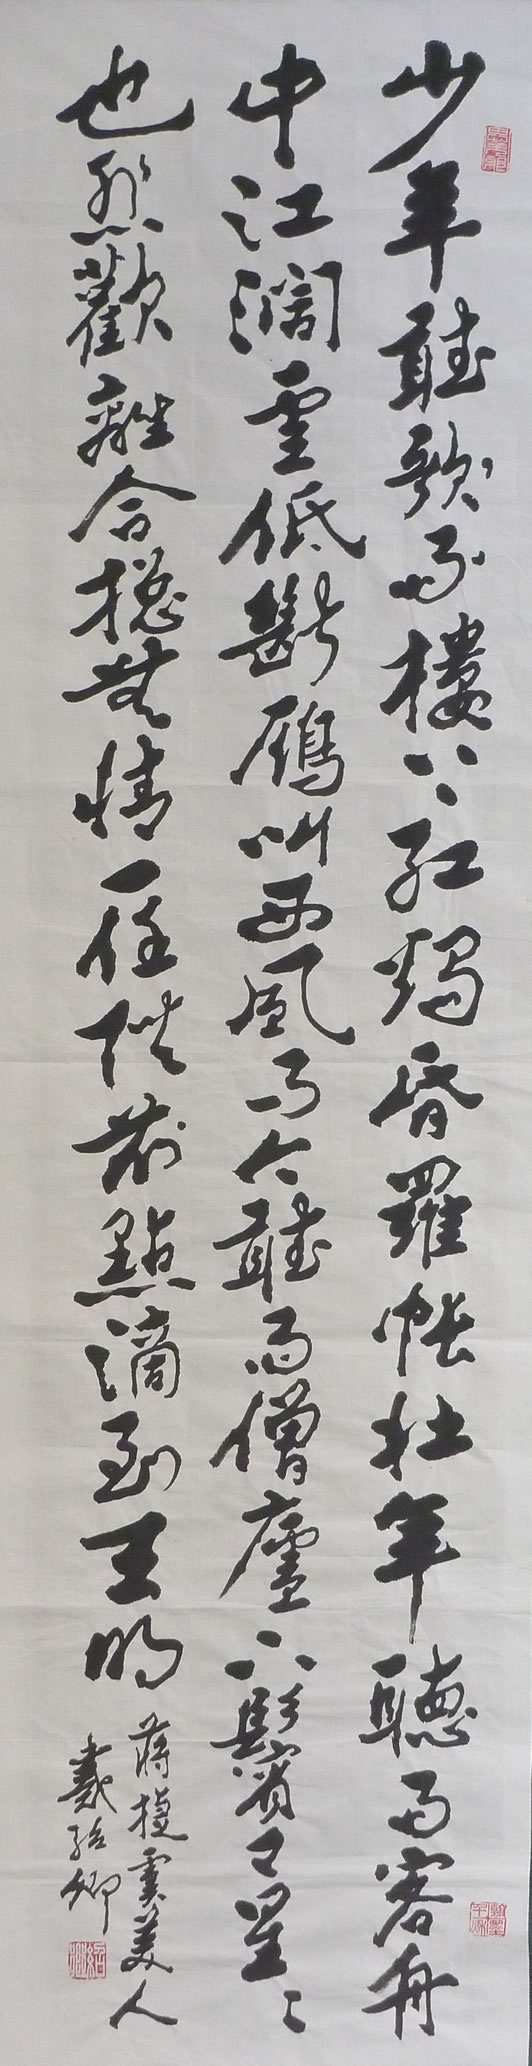 少年聽歌雨樓上紅燭昏羅帳壯年聽雨客舟
中江闊雲低斷鴈叫西風而今聽雨僧廬下鬢已星〻
也悲歡離合總無情一任階前點滴到天明
蔣捷虞美人
戴卿